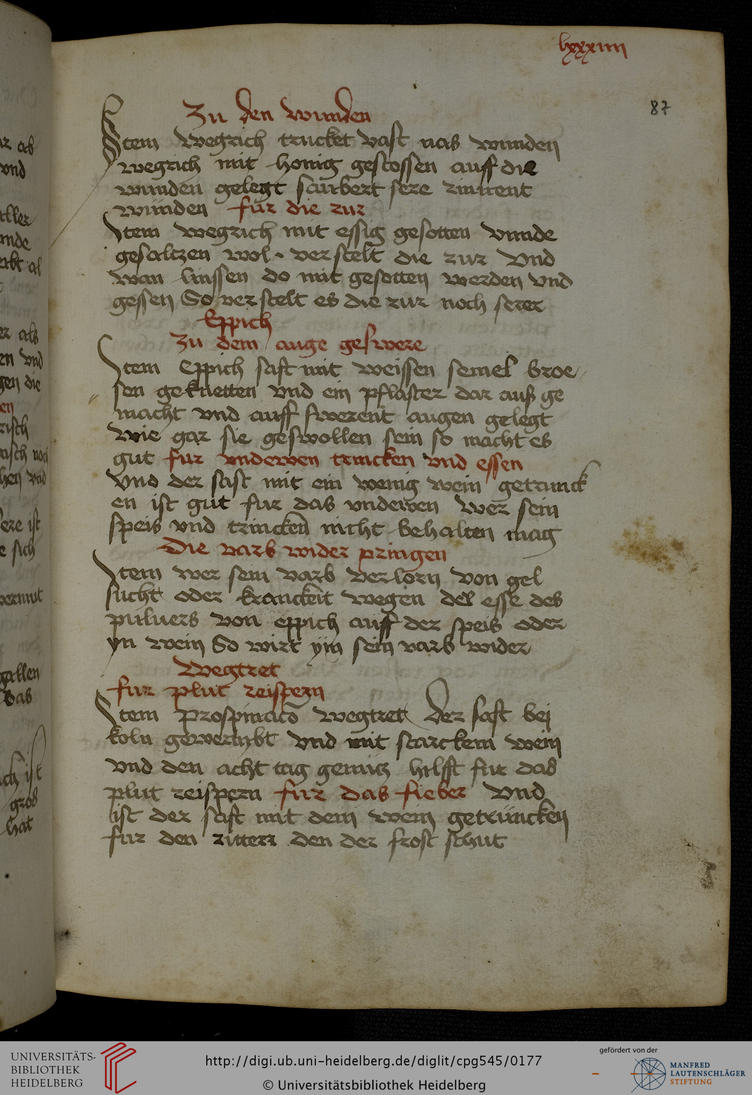 lxxxiiii
87
Zu den wunden
Item wegrich trucket vast nas wunden
wegrich mit honig gestossen auff die
wunden gelegt saubert sere rinnent
wunden fur die rur
Item wegrich mit essig gesotten vnnde
gesaltzen wol verstelt die rur Vnd
wan linssen do mit gesotten werden vnd
gessen So verstelt es die rur noch serer
Eppich
Zu dem auge geswere
Item Eppich saft mit weissen semel broe
sen geknetten vnd ein pflaster dar auß ge
macht vnd auff swerent augen gelegt
wie gar sie geswollen sein so macht es
gut fur vndewen trincken vnd essen
Vnd der saft mit ein wenig wein getrunck
en ist gut fur das vndewen Wer sein
speis vnd trincken nicht behalten mag
Die varb wider pringen
Item wer sein varb verlorn von gel
sucht oder kranckeit wegen der esse des
puluers von eppich auff der speis oder
yn wein So wirt ym sein varb wider
Wegtret
fur plut reispern
Item wegtret Der saft bei
koln gewermbt vnd mit starckem wein
vnd den acht tag genutz hilfft fur das
plut reispern fur das fieber Vnd
ist der saft mit dem wein getruncken
fur den ritten den der frost schut
UNIVERSITÄTS-
BIBLIOTHEK
HEIDELBERG
http://digi.ub.uni-heidelberg.de/diglit/cpg545/0177
© Universitätsbibliothek Heidelberg
gefördert von der
MANFRED
LAUTENSCHLÄGER
STIFTUNG